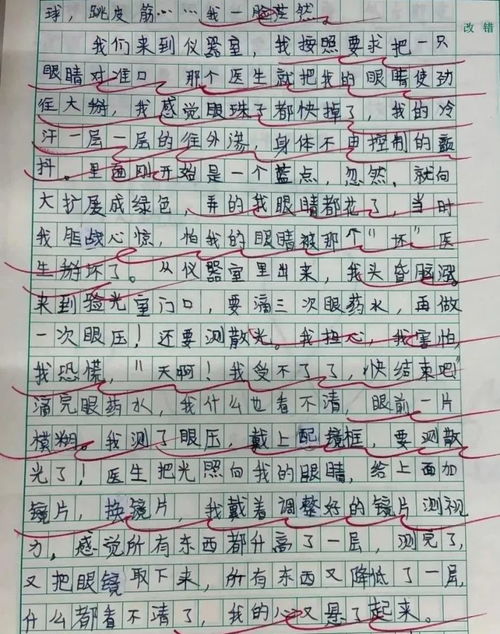 球，跳皮筋……我一脸茫然
改错
我们来到仪器室，我按照要求把一只
眼睛对准口，那个医生就把我的眼睛使劲
往大掰，我感觉眼珠子都快掉了，我的冷
汗一层一层的往外渗，身体不由控制的
抖。里面刚开始是一个蓝点，忽然，就向
大扩展成绿色，弄的我眼睛都花了，当时
我胆战心惊，怕我的眼睛被那个"坏"医
生掰坏了。从仪器室里出来，我头昏脑涨。
来到验光室门口，要滴三次眼药水，再做
一次眼压！还要测散光。我担心，我害怕，
我恐慌，"天啊！我受不了了，快结束吧"
滴完眼药水，我什么也看不清，眼前一片
模糊。我测了眼压，戴上配镜框，要测散
光了！医生把光照向我的眼睛，给上面加
镜片，换镜片，我戴着调整好的镜片测视
力，感觉所有东西都升高了一层，测完了，
又把眼镜取下来，所有东西又降低了一层，
什么都看不清了，我的心又悬了起来。